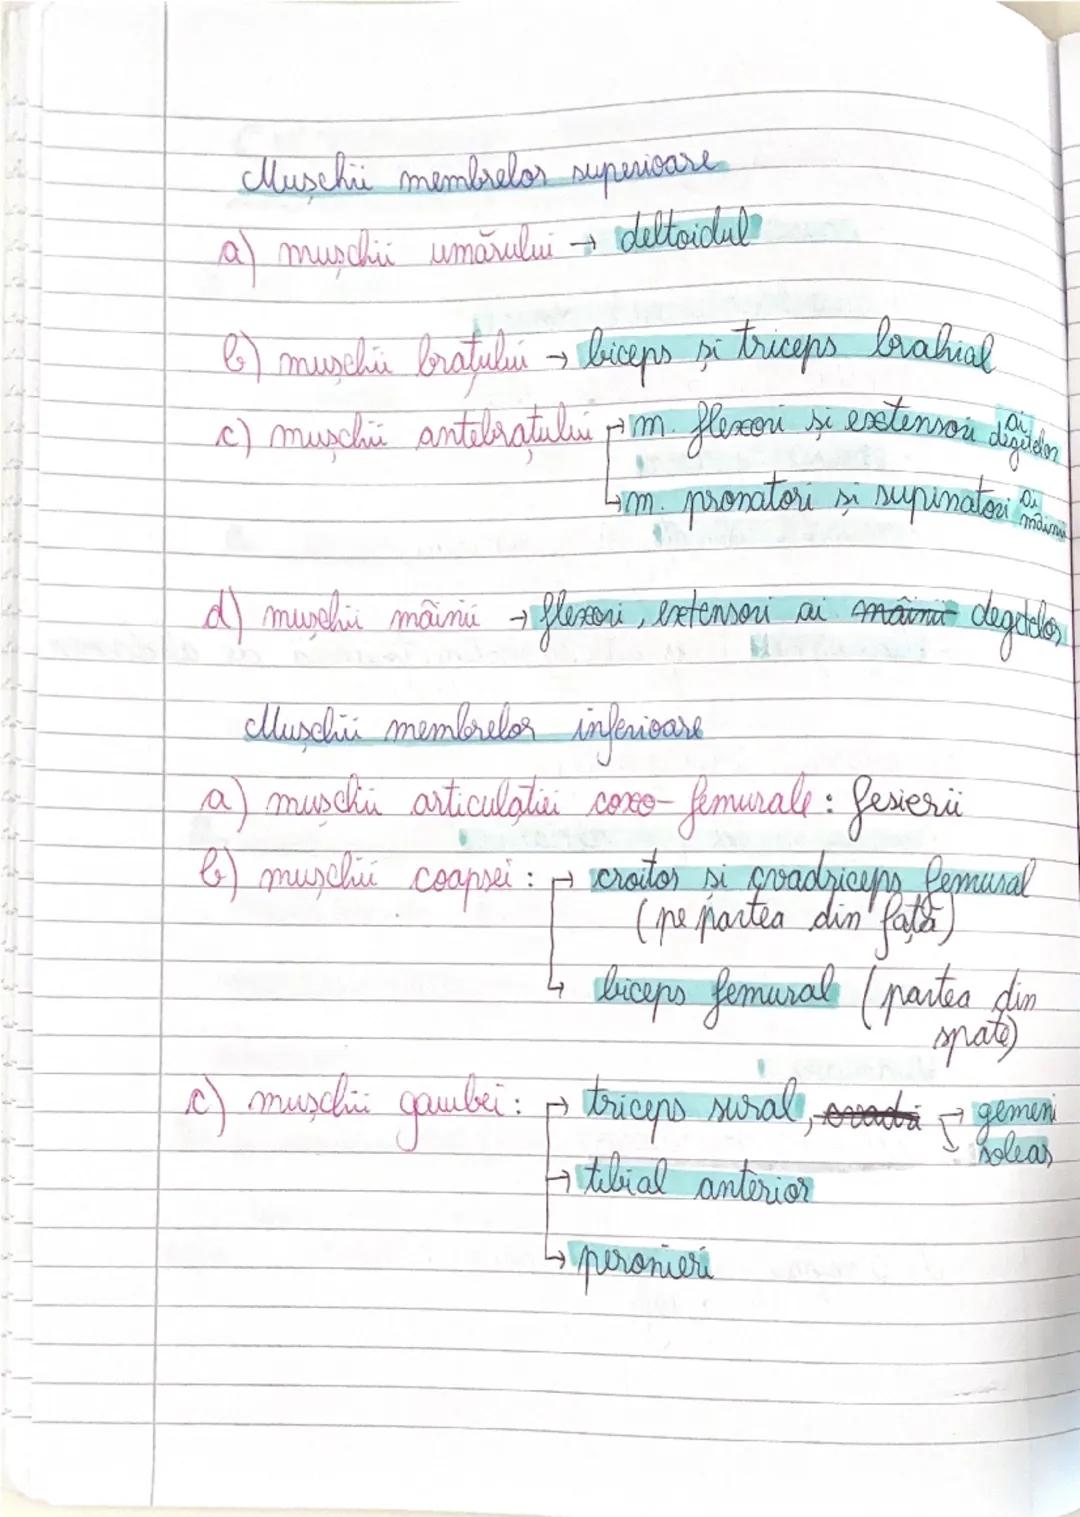 Mușchii membrelor superioare
a) mușchii umărului → deltoidul
b) mușchii brațului → biceps și triceps brahial
c) mușchii antebrațului → m. flexori și extensori ai degetelor
→ m. pronatori și supinatori ai mâinii
d) mușchii mâinii → flexori, extensori ai mâinii degetelor
Mușchii membrelor inferioare
a) mușchii articulației coxo-femurale: fesierii
b) mușchii coapsei: → croitor și cvadriceps femural
(pe partea din față)
→ biceps femural (partea din
spate)
c) mușchii gambei: → triceps sural, → gemeni
→ solear
→ tibial anterior
→ peronieri